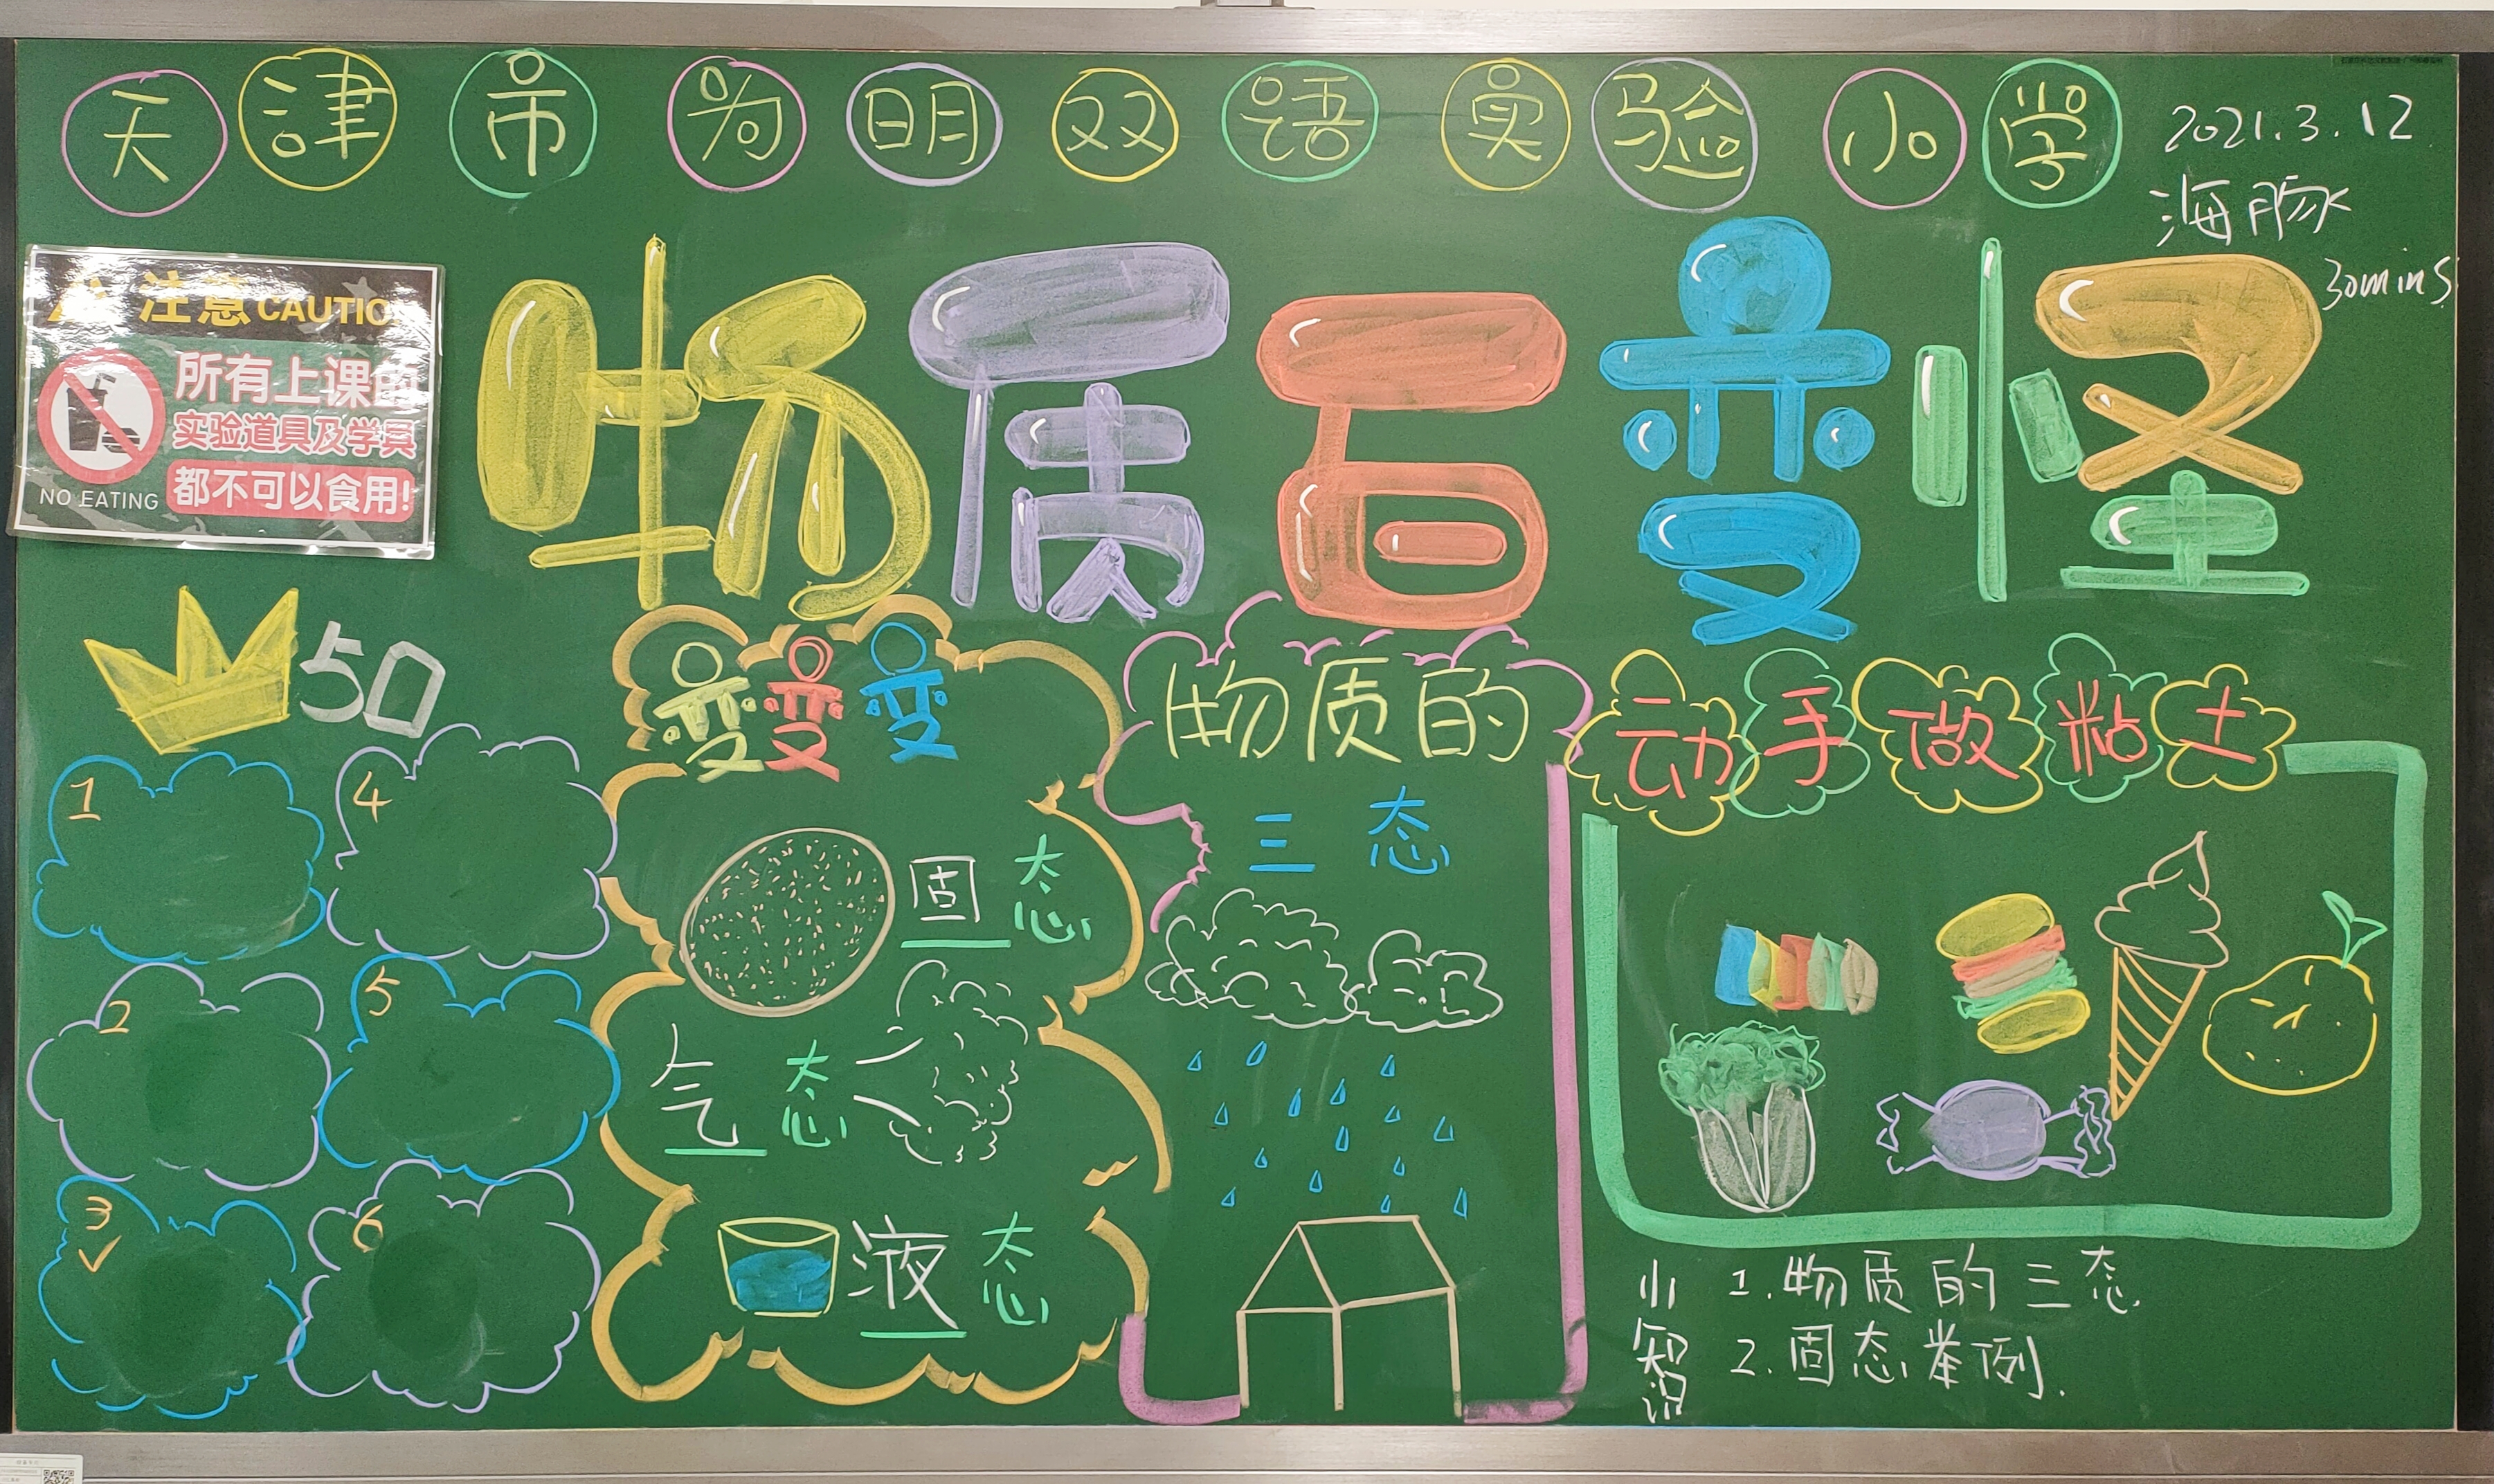 天津市为明双语实验小学
2021.3.12
海豚
30mins
注意 CAUTION
所有上课的
实验道具及学具
都不可以食用!
NO EATING
物质百变怪
50
1
4
2
5
3
6
变变变
固态
气态
液态
物质的
三态
动手做粘土
小知识
1.物质的三态
2.固态举例.